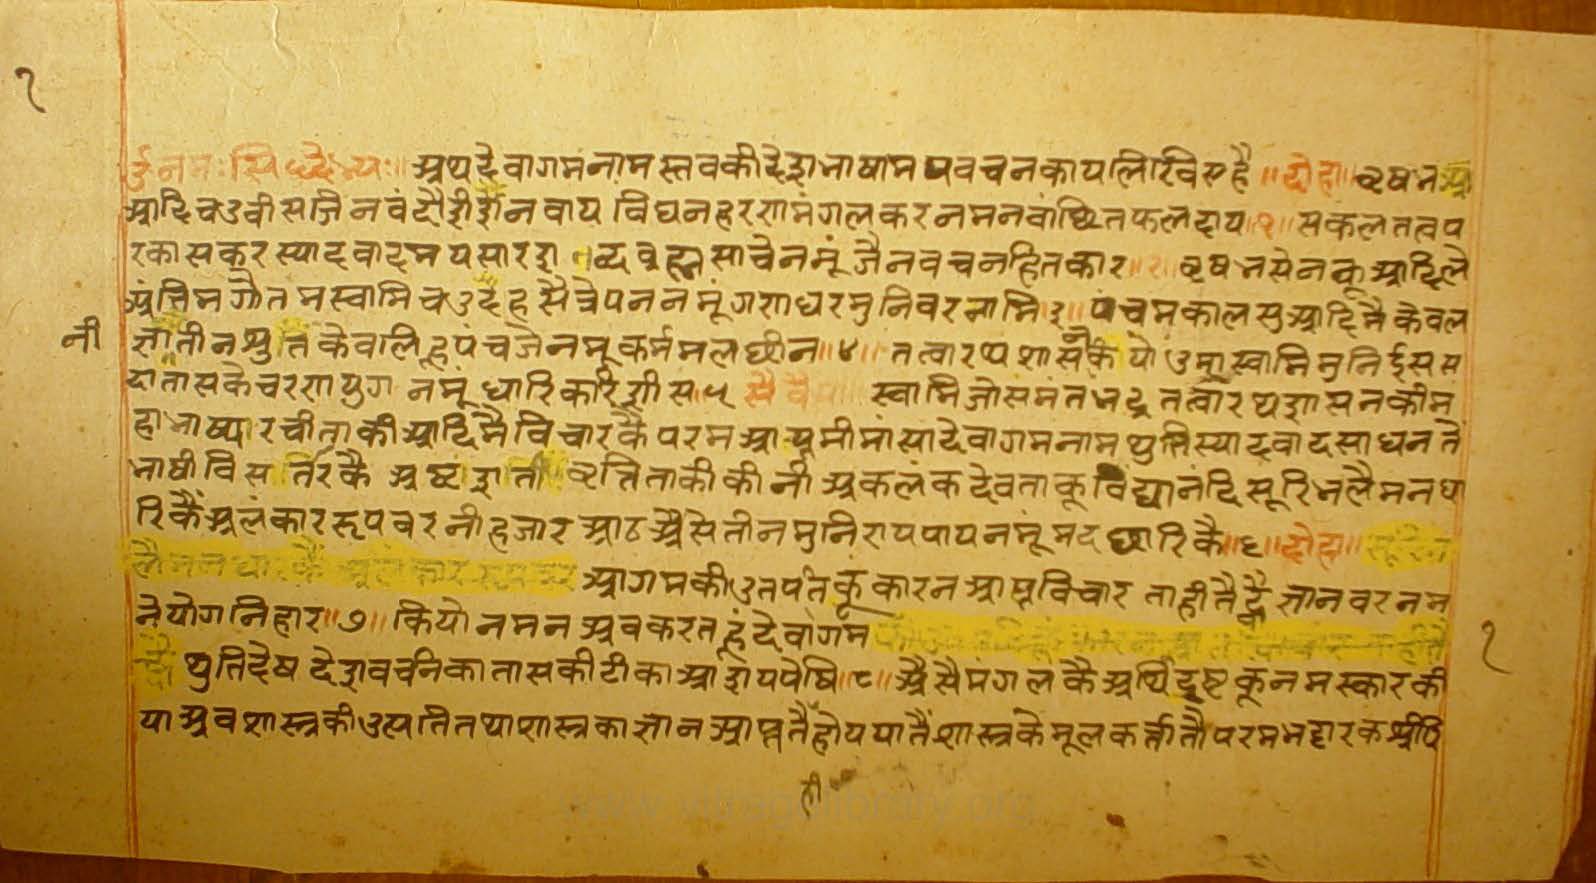 १
ॐ नमः सिद्धेभ्यः॥ अथ देवागमनाम स्तवकी देशभाषामय वचनका य लिखिए है॥ दोहा॥ वृषभ आ
आदि चउवीस जिन वंदौ शीश नवाय विघन हरण मंगल करन मनवांछित फलदाय १॥ सकल तत्व प
रकास कर स्यादवादमय सार शब्द ब्रह्म साचे नमूं जैन वचन हितकार॥ २॥ वृषभसेन कू आदि ले
अंतिम गौतम स्वामि चउदहसै त्रेपन नमूं गणधर मुनिवर नामि ३॥ पंचमकाल सु आदि मै केवल
नी
ज्ञानी तीन श्रुत केवलि हू पंच जे नमू कर्ममल छीन॥ ४॥ तत्वारथ शासन कीयो उमास्वामि मुनि ईस स
दा तास के चरण युग नमूं धारि करि शीस॥ ५ सवैया॥ स्वामि जो समंतभद्र तत्वारथ शासन की म
हाभाष्य रची ताकी आदि मै विचारकै परम आप्त मीमांसा देवागम नाम थुति स्यादवाद साधन तै
भाषी विसतरिकै अष्टशती वृत्ति ताकी कीनी अकलंकदेव ताकू विद्यानंदि सूरि भलै मन धा
रिकैं अलंकार रूप वरनी हजार आठ अैसे तीन मुनिराय पाय नमूं मद छारिकै॥ ६॥ दोहा॥
आगम की उतपति कू कारन आप्त विचार ताही तै ह्वै ज्ञान वर नम
ने योग निहार॥ ७॥ कियो नमन अब करत हूं देवागम
१
थुति देष देश वचनिका तास की टीका आशय पेषि॥ ८॥ अैसै मंगल कै अर्थि इष्ट कू नमस्कार की
या अब शास्त्र की उत्पति तथा शास्त्र का ज्ञान आप्त तै होय यातैं शास्त्र के मूलकर्त्ता तौ परम भट्टारक श्री
ही
www.vitragilibrary.org